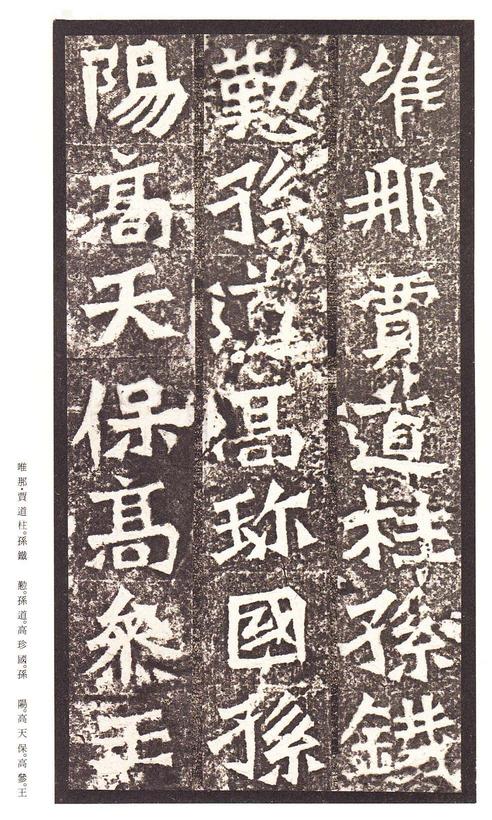 唯那賈道柱孫鐵
懃孫道高珍國孫
陽高天保高參王
唯那・賈道柱。孫鐵　懃。孫道。高珍國。孫　陽。高天保。高參。王